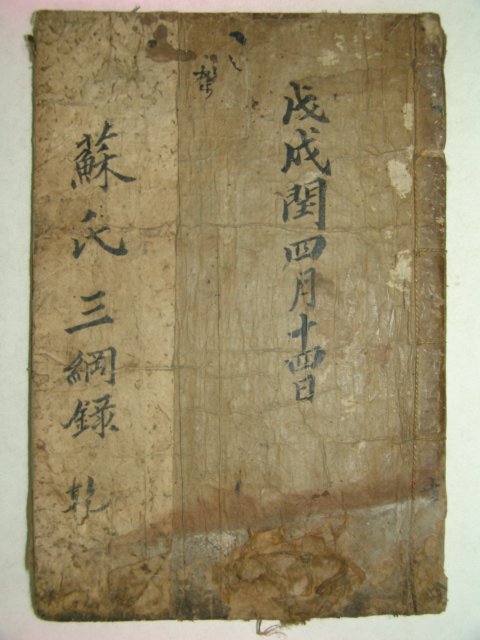 戊戌閏四月十四日
蘇氏三綱錄 乾